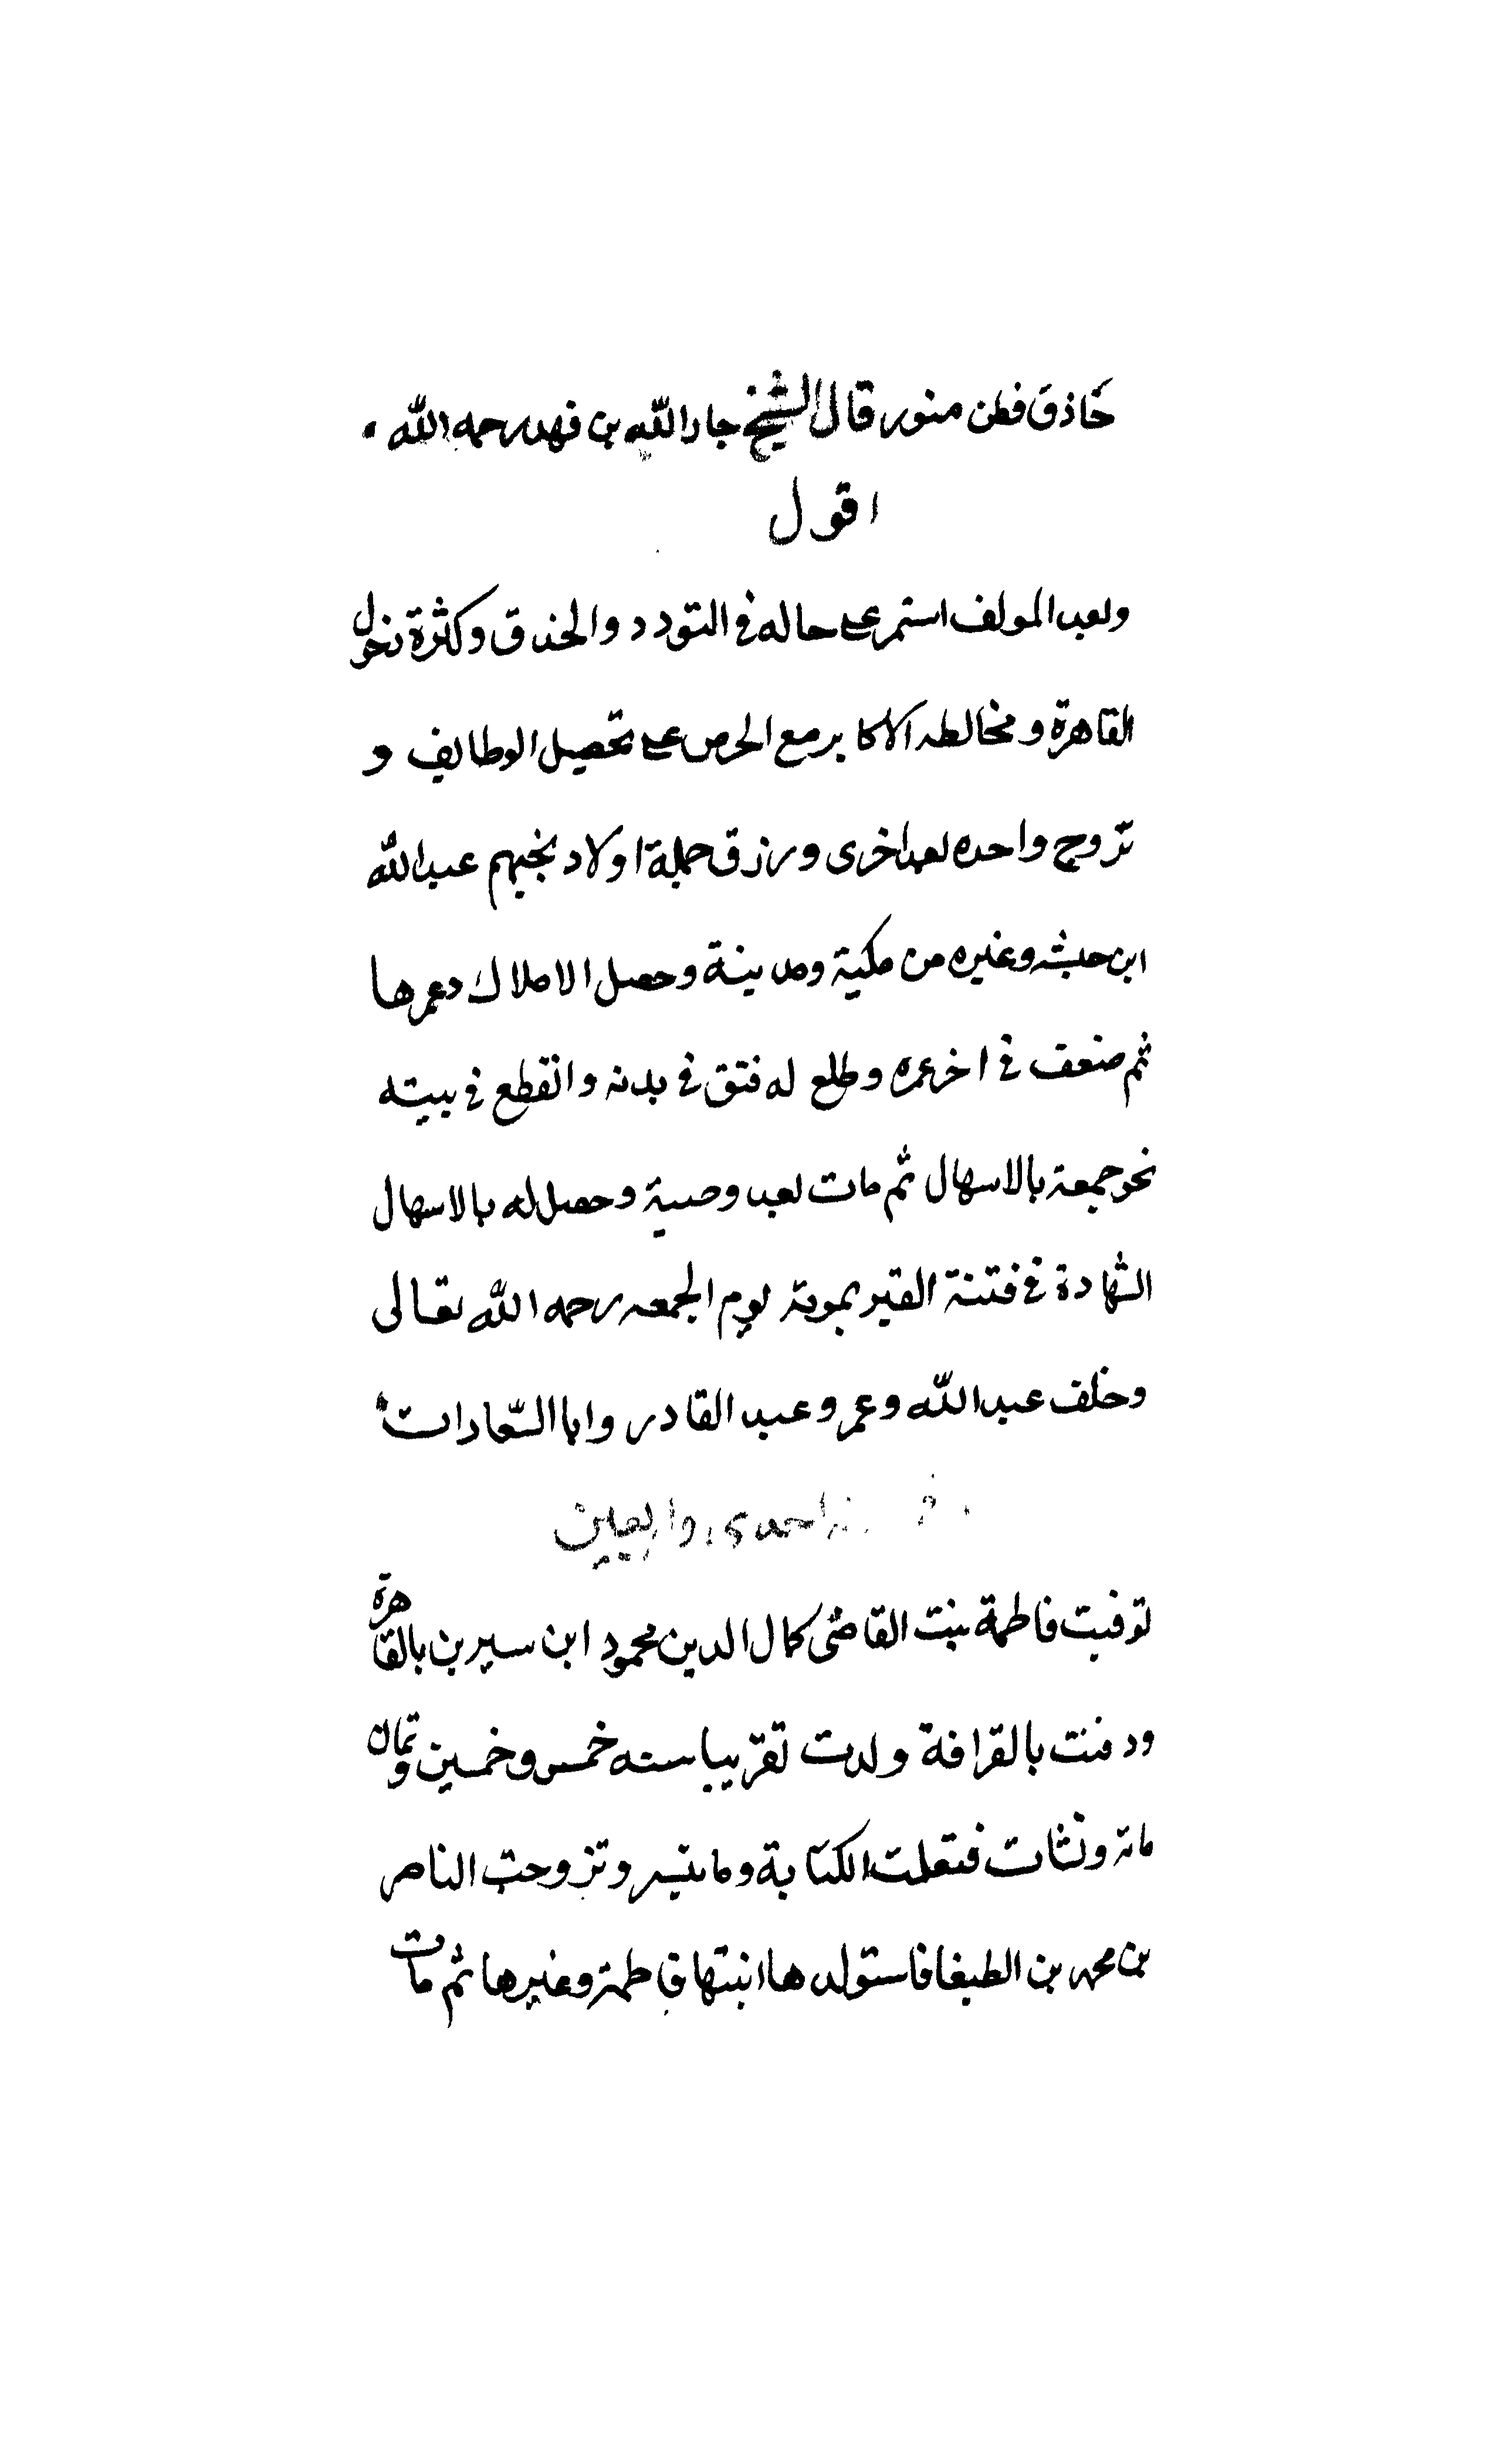 حاذق فطن منور قال الشيخ جار الله بن فهد رحمه الله
اقول
وبعد المولف استمر على حاله في التودد والحذق وكثرة دخول
القاهرة ومخالطه الاكابر مع الحرص على تحصيل الوظايف و
تزوج واحده بعد اخرى ورزق جملة اولاد نجيبهم عبد الله
ابن حبشه وغيره من مكية ومدينة وحصل الاملاك وعمرها
ثم ضعف في اخر عمره وطلع له فتق في بدنه وانقطع في بيته
نحو جمعة بالاسهال ثم مات بعد وصية وحصل له بالاسهال
الشهادة في فتنة القبر بموته يوم الجمعه رحمه الله تعالى
وخلف عبد الله وعمر وعبد القادر وابا السعادات
احدى واربعين
توفيت فاطمة بنت القاضى كمال الدين محمود ابن سيرين بالقاهرة
ودفنت بالقرافة ولدت تقريبا سنه خمس وخمسين وثمان
مائة ونشات فتعلمت الكتابة وما تيسر وتزوجت الناصر
بن محمد بن الطبغا فاستولدها ابنتها فاطمة وغيرها ثم مات